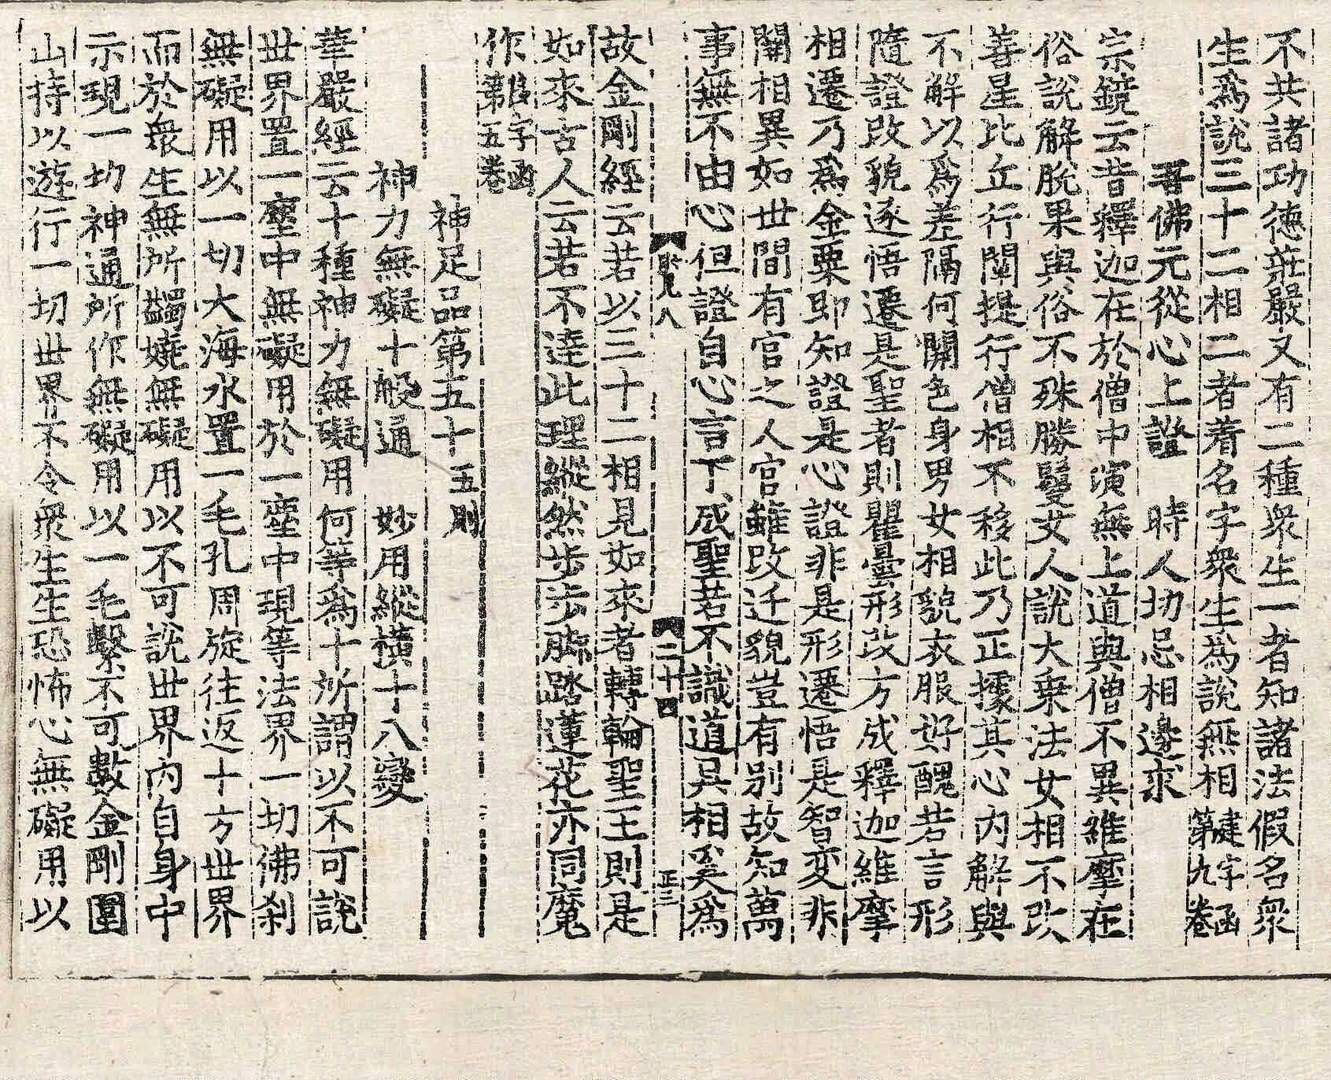 不共諸功德莊嚴又有二種衆生一者知諸法假名衆
生爲說三十二相二者着名字衆生爲說無相建字函第九卷
吾佛元從心上證 時人切忌相邊求
宗鏡云昔釋迦在於僧中演無上道與僧不異維摩在
俗說解脫果與俗不殊勝鬘女人說大乘法女相不改
善星比丘行闡提行僧相不移此乃正據其心內解與
不解以爲差隔何關色身男女相貌衣服好醜若言形
隨證改貌逐悟遷是聖者則瞿曇形改方成釋迦維摩
相遷乃爲金粟即知證是心證非是形遷悟是智變非
關相異如世間有官之人官雖改迁貌豈有別故知萬
事無不由心但證自心言下成聖若不識道具相奚爲
二十四
正三
故金剛經云若以三十二相見如來者轉輪聖王則是
如來古人云若不達此理縱然步步脚踏蓮花亦同魔
作惟字函第五卷
神足品第五十五則
神力無礙十般通 妙用縱橫十八變
華嚴經云十種神力無礙用何等爲十所謂以不可說
世界置一塵中無礙用於一塵中現等法界一切佛刹
無礙用以一切大海水置一毛孔周旋往返十方世界
而於衆生無所觸嬈無礙用以不可說世界內自身中
示現一切神通所作無礙用以一毛繫不可數金剛圍
山持以遊行一切世界不令衆生生恐怖心無礙用以